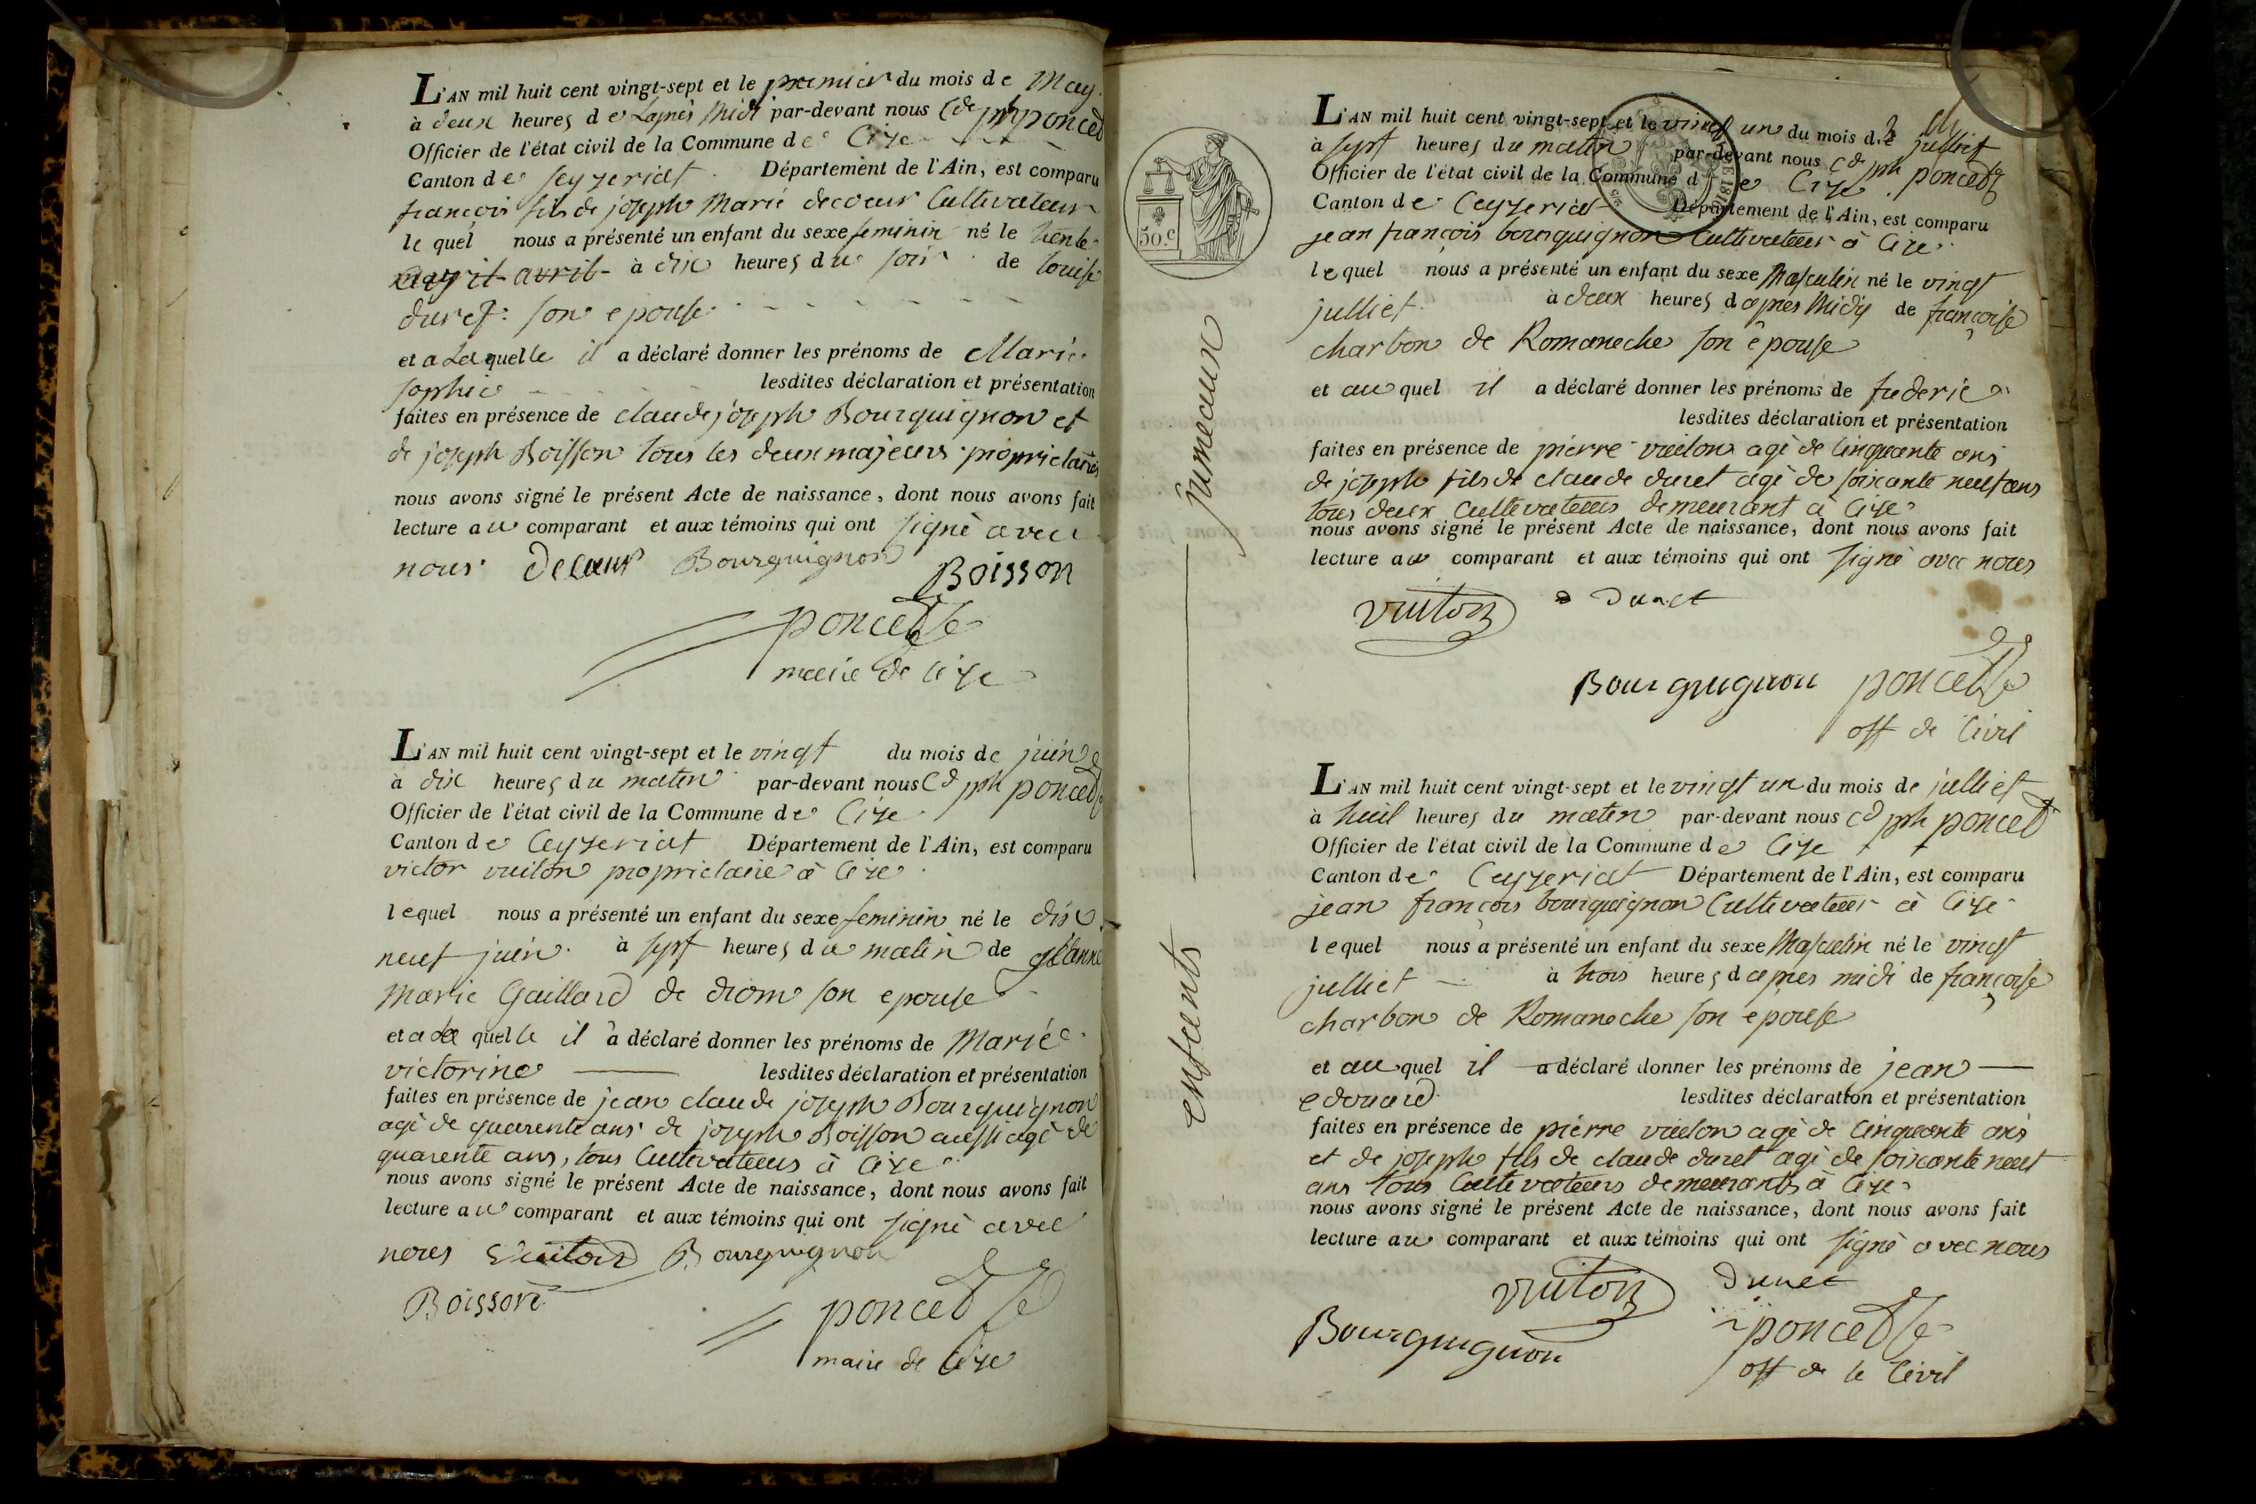 L'AN mil huit cent vingt-sept et le premier du mois de May
à deux heures de Lapres Midi par-devant nous Cde jph poncet
Officier de l'état civil de la Commune de Cize
Canton de Ceyzeriat Département de l'Ain, est comparu
françois fils de joseph Marie decoeur Cultivateur
lequel nous a présenté un enfant du sexe feminin né le trente
avril à dix heures du soir de Louise
duret son epouse
et a Laquelle il a déclaré donner les prénoms de Marie
sophie lesdites déclaration et présentation
faites en présence de claude joseph Bourguignon et
de joseph Boisson tous les deux majeurs proprietaires
nous avons signé le présent Acte de naissance, dont nous avons fait
lecture au comparant et aux témoins qui ont signé avec
nous Decoeur Bourguignon
Boisson
poncet
maire de Cize
L'AN mil huit cent vingt-sept et le vingt du mois de juin
à dix heures du matin par-devant nous Cd jph poncet
Officier de l'état civil de la Commune de Cize
Canton de Ceyzeriat Département de l'Ain, est comparu
victor vuiton proprietaire à Cize
lequel nous a présenté un enfant du sexe feminin né le dix
neuf juin à sept heures du matin de
Marie Gaillard de drom son epouse
et a la quelle il a déclaré donner les prénoms de Marie
victorine lesdites déclaration et présentation
faites en présence de jean claude joseph Bourguignon
agé de quarente ans de joseph Boisson aussi agé de
quarente ans, tous Cultivateurs à Cize
nous avons signé le présent Acte de naissance, dont nous avons fait
lecture au comparant et aux témoins qui ont signé avec
nous Vuiton Bourguignon
Boisson
poncet
maire de Cize
50.c
jumeaux
enfants
L'AN mil huit cent vingt-sept et le vingt un du mois de julliet
à sept heures du matin par-devant nous Cde jph poncet
Officier de l'état civil de la Commune de Cize
Canton de Ceyzeriat Département de l'Ain, est comparu
jean françois bourguignon Cultivateur à Cize
lequel nous a présenté un enfant du sexe Masculin né le vingt
julliet à deux heures dapres Midy de françoise
charbon de Romaneche son epouse
et au quel il a déclaré donner les prénoms de frederic
lesdites déclaration et présentation
faites en présence de pierre vuiton agé de Cinquante ans
de joseph fils de claude duret agé de soixante neuf ans
tous deux Cultivateurs demeurant à Cize
nous avons signé le présent Acte de naissance, dont nous avons fait
lecture au comparant et aux témoins qui ont signé avec nous
vuiton Duret
Bourguignon poncet
off de Civil
L'AN mil huit cent vingt-sept et le vingt un du mois de julliet
à huit heures du matin par-devant nous Cd jph poncet
Officier de l'état civil de la Commune de Cize
Canton de Ceyzeriat Département de l'Ain, est comparu
jean françois bourguignon Cultivateur à Cize
lequel nous a présenté un enfant du sexe Masculin né le vingt
julliet à trois heures dapres midi de françoise
charbon de Romaneche son epouse
et au quel il a déclaré donner les prénoms de jean
edouard lesdites déclaration et présentation
faites en présence de pierre vuiton agé de Cinquante ans
et de joseph fils de claude duret agé de soixante neuf
ans tous Cultivateurs demeurants à Cize
nous avons signé le présent Acte de naissance, dont nous avons fait
lecture au comparant et aux témoins qui ont signé avec nous
vuiton Duret
Bourguignon poncet
off de le Civil